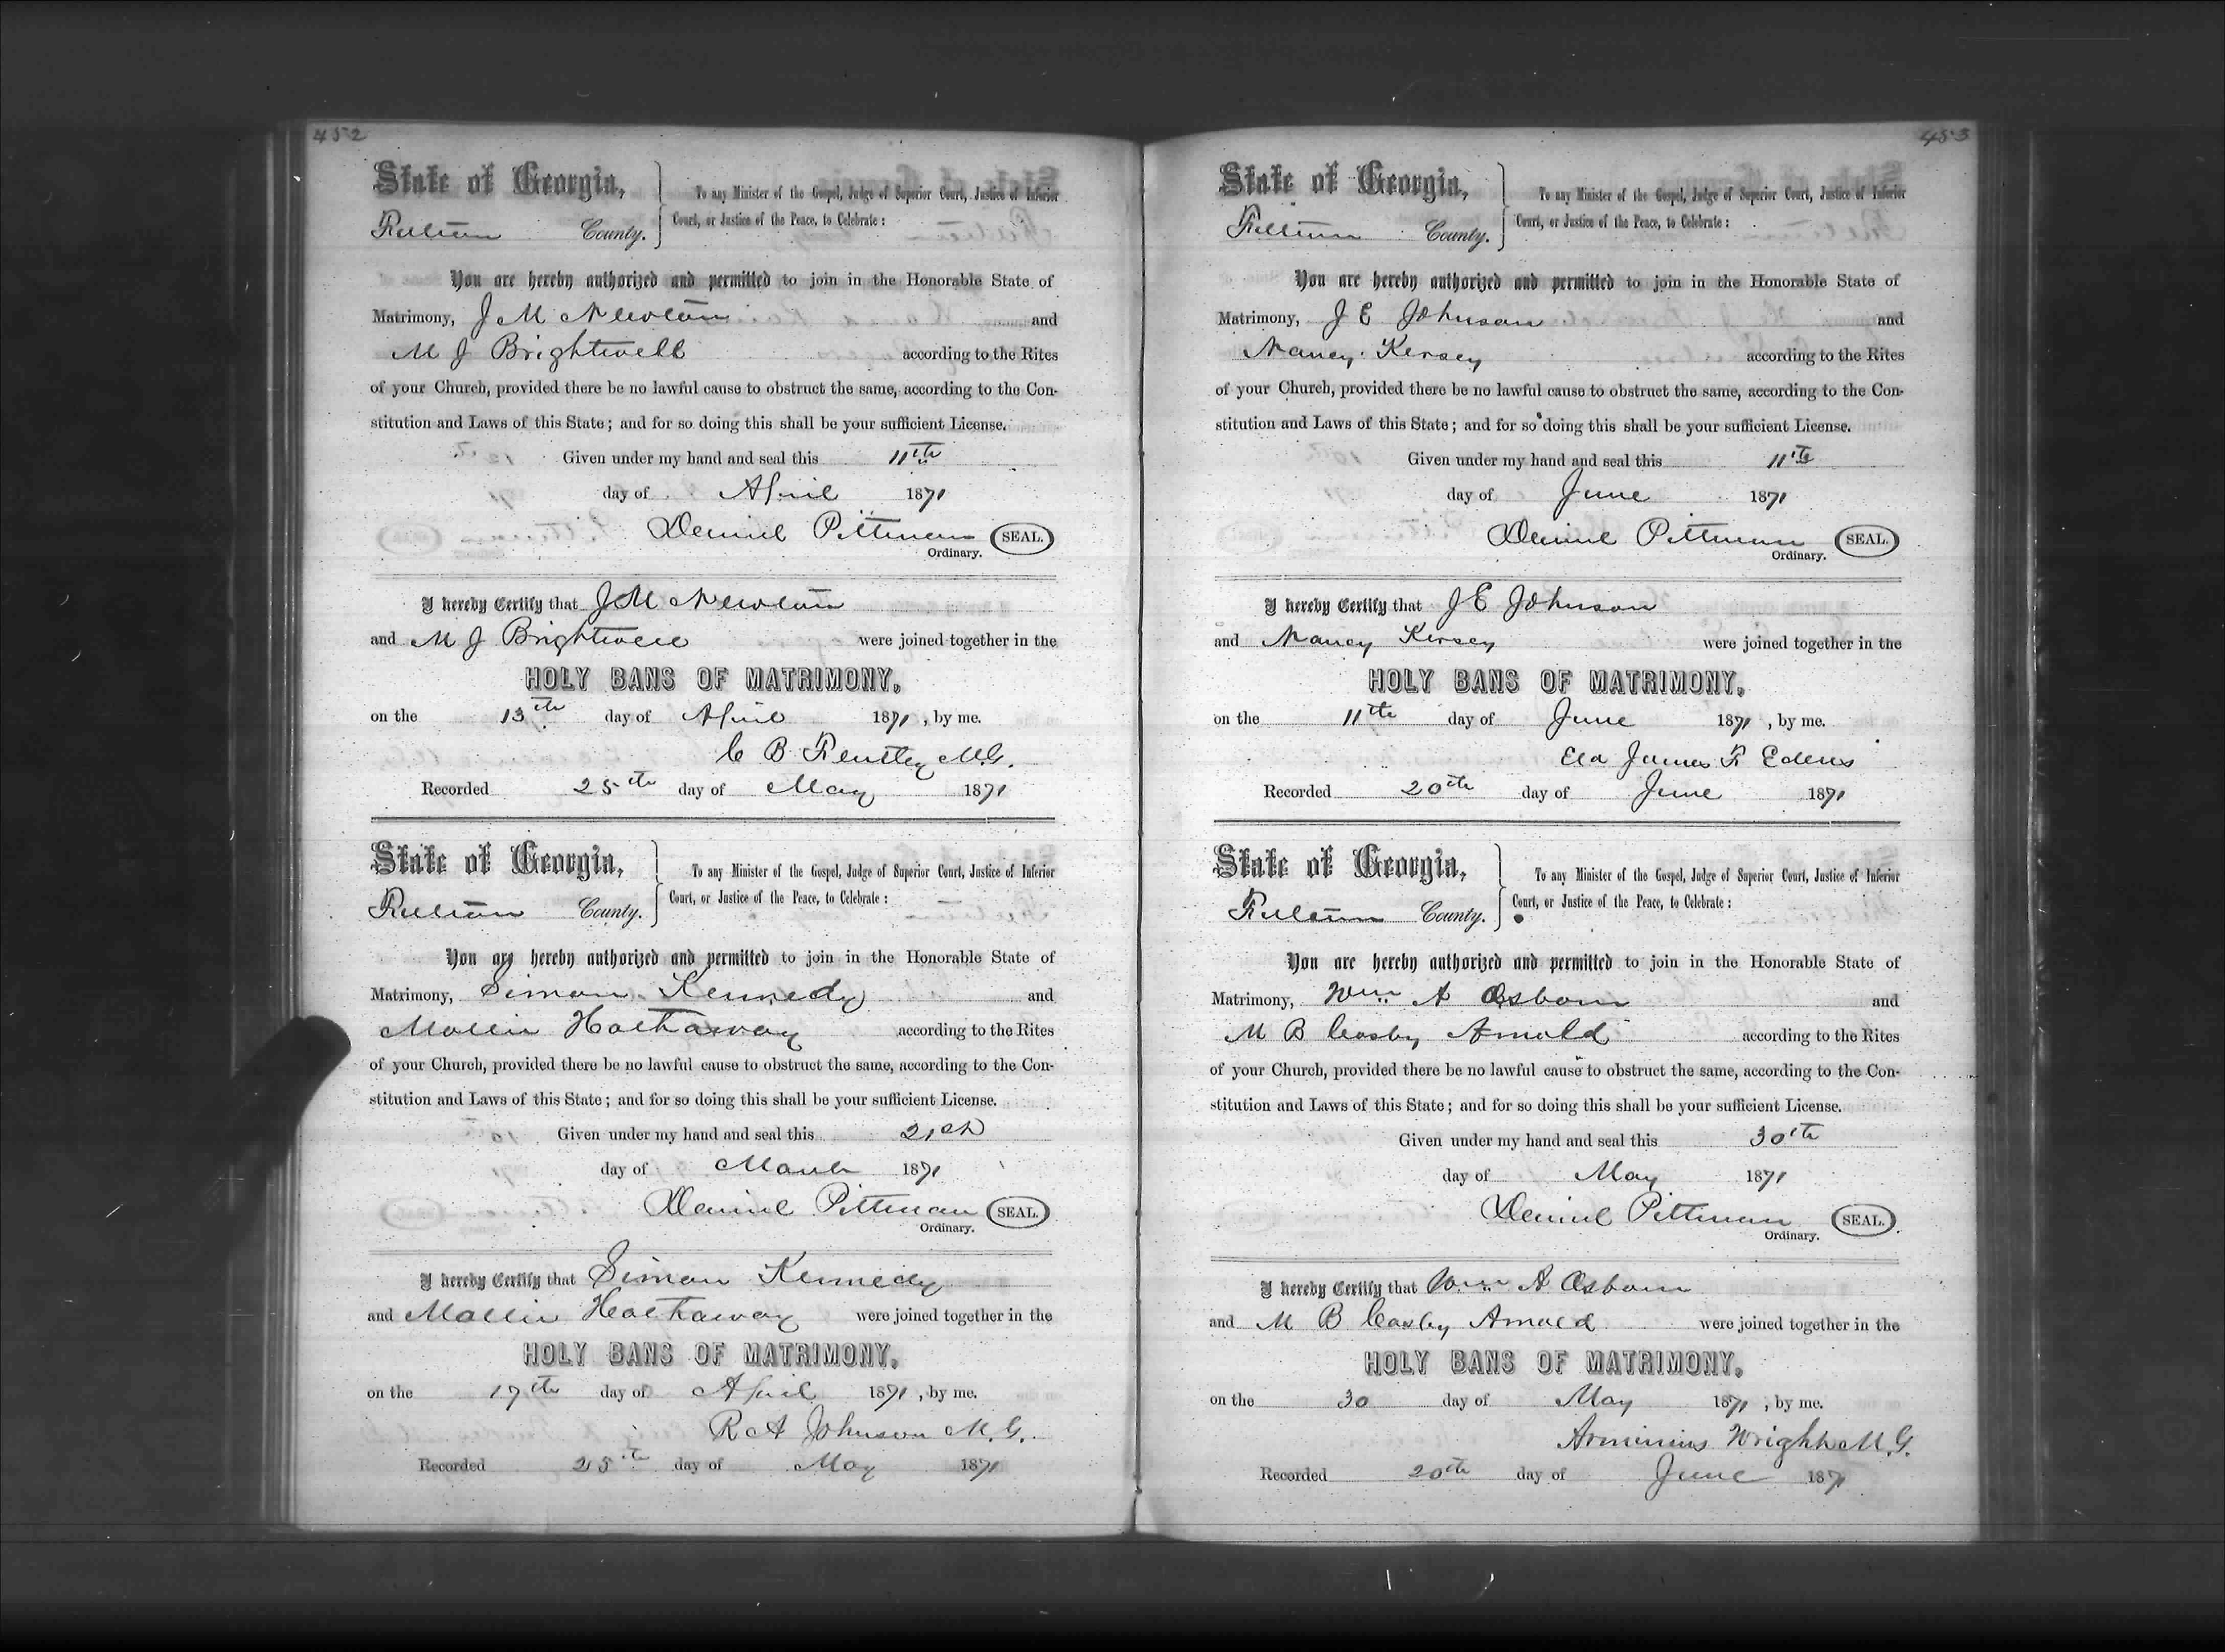 452
State of Georgia,
Fulton County.
To any Minister of the Gospel, Judge of Superior Court, Justice of Inferior
Court, or Justice of the Peace, to Celebrate :
You are hereby authorized and permitted to join in the Honorable State of
Matrimony, J M Newton and
M J Brightwell according to the Rites
of your Church, provided there be no lawful cause to obstruct the same, according to the Con-
stitution and Laws of this State ; and for so doing this shall be your sufficient License.
Given under my hand and seal this 11th
day of April 1871
Daniel Pittman SEAL.
Ordinary.
I hereby Certify that J M Newton
and M J Brightwell were joined together in the
HOLY BANS OF MATRIMONY,
on the 13th day of April 1871 , by me.
C B M.G.
Recorded 25th day of May 1871
State of Georgia,
Fulton County.
To any Minister of the Gospel, Judge of Superior Court, Justice of Inferior
Court, or Justice of the Peace, to Celebrate :
You are hereby authorized and permitted to join in the Honorable State of
Matrimony, Simon Kennedy and
Mollie Hathaway according to the Rites
of your Church, provided there be no lawful cause to obstruct the same, according to the Con-
stitution and Laws of this State ; and for so doing this shall be your sufficient License.
Given under my hand and seal this 21st
day of March 1871
Daniel Pittman SEAL.
Ordinary.
I hereby Certify that Simon Kennedy
and Mollie Hathaway were joined together in the
HOLY BANS OF MATRIMONY,
on the 17th day of April 1871 , by me.
R A Johnson M.G.
Recorded 25th day of May 1871
453
State of Georgia,
Fulton County.
To any Minister of the Gospel, Judge of Superior Court, Justice of Inferior
Court, or Justice of the Peace, to Celebrate :
You are hereby authorized and permitted to join in the Honorable State of
Matrimony, J E Johnson and
Nancy Kersey according to the Rites
of your Church, provided there be no lawful cause to obstruct the same, according to the Con-
stitution and Laws of this State ; and for so doing this shall be your sufficient License.
Given under my hand and seal this 11th
day of June 1871
Daniel Pittman SEAL.
Ordinary.
I hereby Certify that J E Johnson
and Nancy Kersey were joined together in the
HOLY BANS OF MATRIMONY,
on the 11th day of June 1871 , by me.
Eld James F Edens
Recorded 20th day of June 1871
State of Georgia,
Fulton County.
To any Minister of the Gospel, Judge of Superior Court, Justice of Inferior
Court, or Justice of the Peace, to Celebrate :
You are hereby authorized and permitted to join in the Honorable State of
Matrimony, Wm A Osborn and
M B Cosby Arnold according to the Rites
of your Church, provided there be no lawful cause to obstruct the same, according to the Con-
stitution and Laws of this State ; and for so doing this shall be your sufficient License.
Given under my hand and seal this 30th
day of May 1871
Daniel Pittman SEAL.
Ordinary.
I hereby Certify that Wm A Osborn
and M B Cosby Arnold were joined together in the
HOLY BANS OF MATRIMONY,
on the 30 day of May 1871 , by me.
Arminius Wright M.G.
Recorded 20th day of June 1871